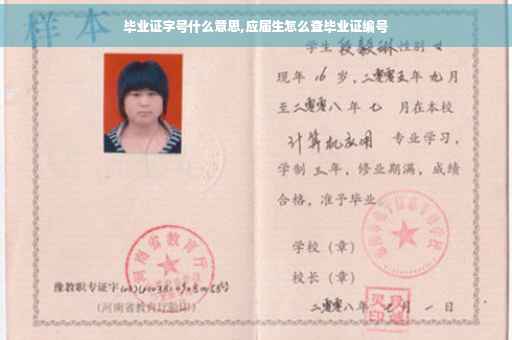 毕业证字号什么意思,应届生怎么查毕业证编号
样本
学生段毅琳性别女
现年16岁,二零零五年九月
至二零零八年七月在本校
计算机应用专业学习,
学制三年,修业期满,成绩
合格,准予毕业。
学校(章)
校长(章)
二零零八年七月一日
河南省教育厅
豫教职专证字
(河南省教育厅验印)